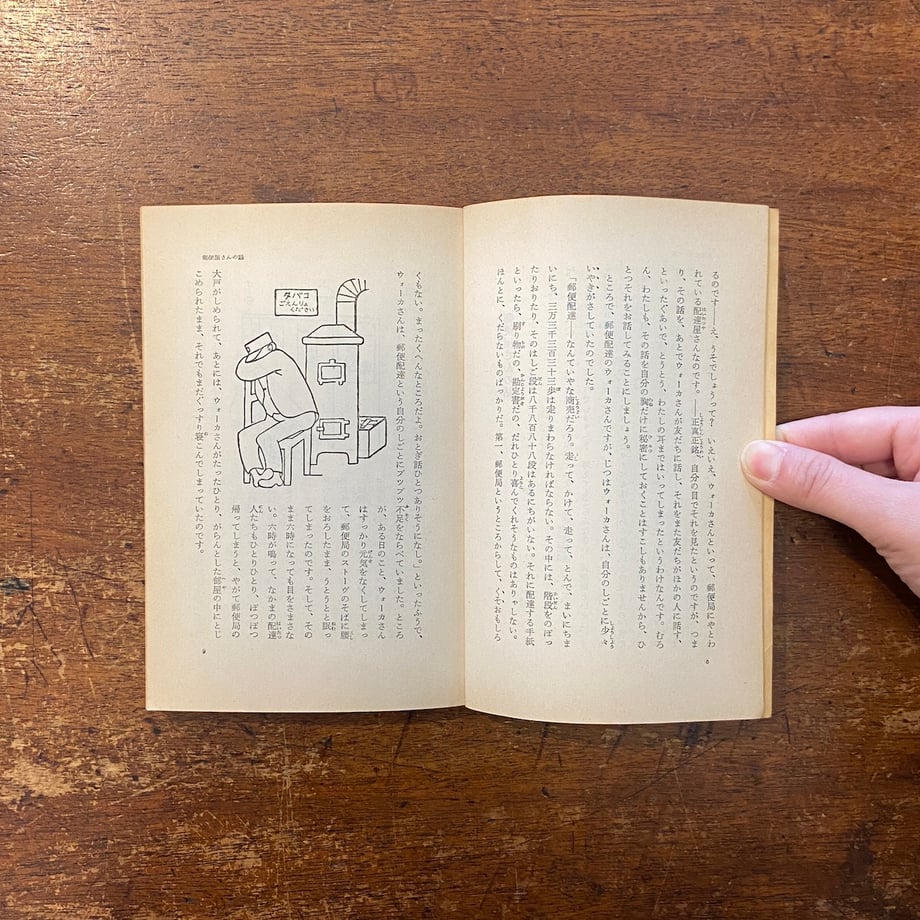 るのです――え、うそでしょうって？ いえいえ、ウォーカさんといって、郵便局にやとわ
れている配達屋さんなのです。――正真正銘、自分の目でそれを見たというのですが、つま
り、その話を、あとでウォーカさんが友だちに話し、それをまた友だちがほかの人に話す、
といったぐあいで、とうとう、わたしの耳まではいってしまったというわけなんです。むろ
ん、わたしも、その話を自分の胸だけに秘密にしておくことはすこしもありませんから、ひ
とつそれをお話してみることにしましょう。
ところで、郵便配達のウォーカさんですが、じつはウォーカさんは、自分のしごとに少々
いやきがさしていたのでした。
「郵便配達――なんていやな商売だろう。走って、かけて、走って、とんで、まいにちま
いにち、三万三千三百三十三歩は走りまわらなければならない。その中には、階段をのぼっ
たりおりたり、そのはしご段は八千八百八十八段はあるにちがいない。それに配達する手紙
といったら、刷り物だの、勘定書だの、だれひとり喜んでくれそうなものはありゃしない。
ほんとに、くだらないものばっかりだ。第一、郵便局というところからして、くそおもしろ
8
郵便屋さんの話
くもない。まったくへんなところだよ。おとぎ話ひとつありそうになし。」といったふうで、
ウォーカさんは、郵便配達という自分のしごとにブツブツ不足をならべていました。ところ
が、ある日のこと、ウォーカさん
はすっかり元気をなくしてしまっ
て、郵便局のストーヴのそばに腰
をおろしたまま、うとうとと眠っ
てしまったのです。そして、その
まま六時になっても目をさまさな
い。六時が鳴って、なかまの配達
人たちもひとりひとり、ぽつぽつ
帰ってしまうと、やがて郵便局の
大戸がしめられて、あとには、ウォーカさんがたったひとり、がらんとした部屋の中にとじ
こめられたまま、それでもまだぐっすり寝こんでしまっていたのです。
タバコ
ごえんりょ
ください
9